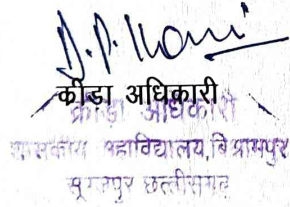 कीडा अधिकारी
क्रीड़ा अधिकारी
शासकीय महाविद्यालय, विश्रामपुर
सूरजपुर छत्तीसगढ़